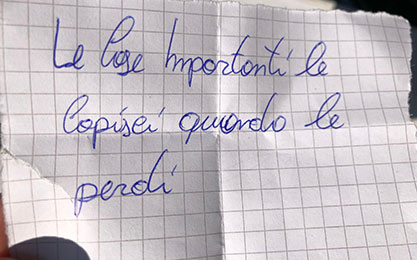 Le Cose Importanti le
Capisci quando le
perdi